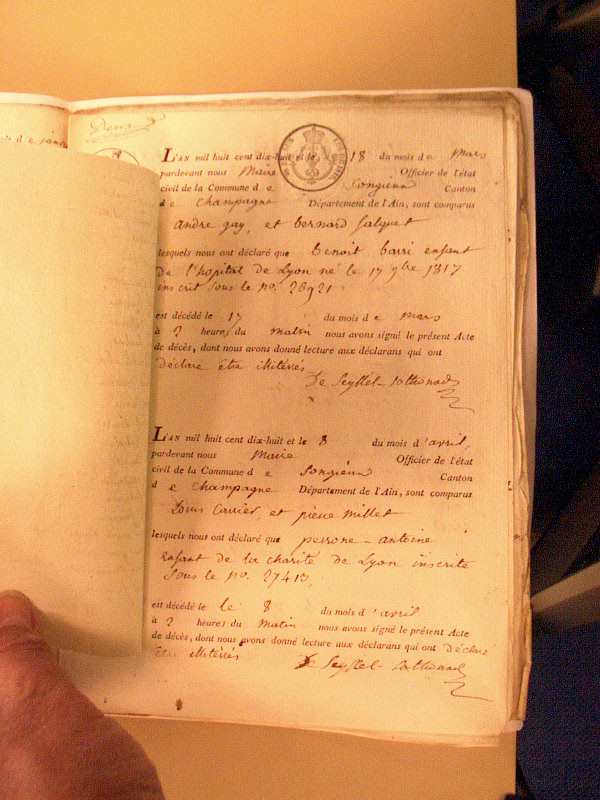 Deux
L'AN mil huit cent dix-huit et le 18 du mois de Mars
pardevant nous Maire Officier de l'état
civil de la Commune de Songieux Canton
de Champagne Département de l'Ain, sont comparus
andre gay, et bernard falquet
lesquels nous ont déclaré que benoit barri enfant
De l'hopital de Lyon né le 17 9bre 1817
inscrit sous le no. 26921
est décédé le 17 du mois de Mars
à 2 heures du matin nous avons signé le présent Acte
de décès, dont nous avons donné lecture aux déclarans qui ont
déclaré être illitérés
De Seyssel-Sothonod
L'AN mil huit cent dix-huit et le 8 du mois d'avril,
pardevant nous Marie Officier de l'état
civil de la Commune de Songieux Canton
de Champagne Département de l'Ain, sont comparus
Louis Carrier, et pierre Millet
lesquels nous ont déclaré que perrone-antoine
enfant de la charité de Lyon inscrite
sous le no. 27410.
est décédé le 8 du mois d'avril
à 2 heures du Matin nous avons signé le présent Acte
de décès, dont nous avons donné lecture aux déclarans qui ont déclaré
être illitérés De Seyssel-Sothonod